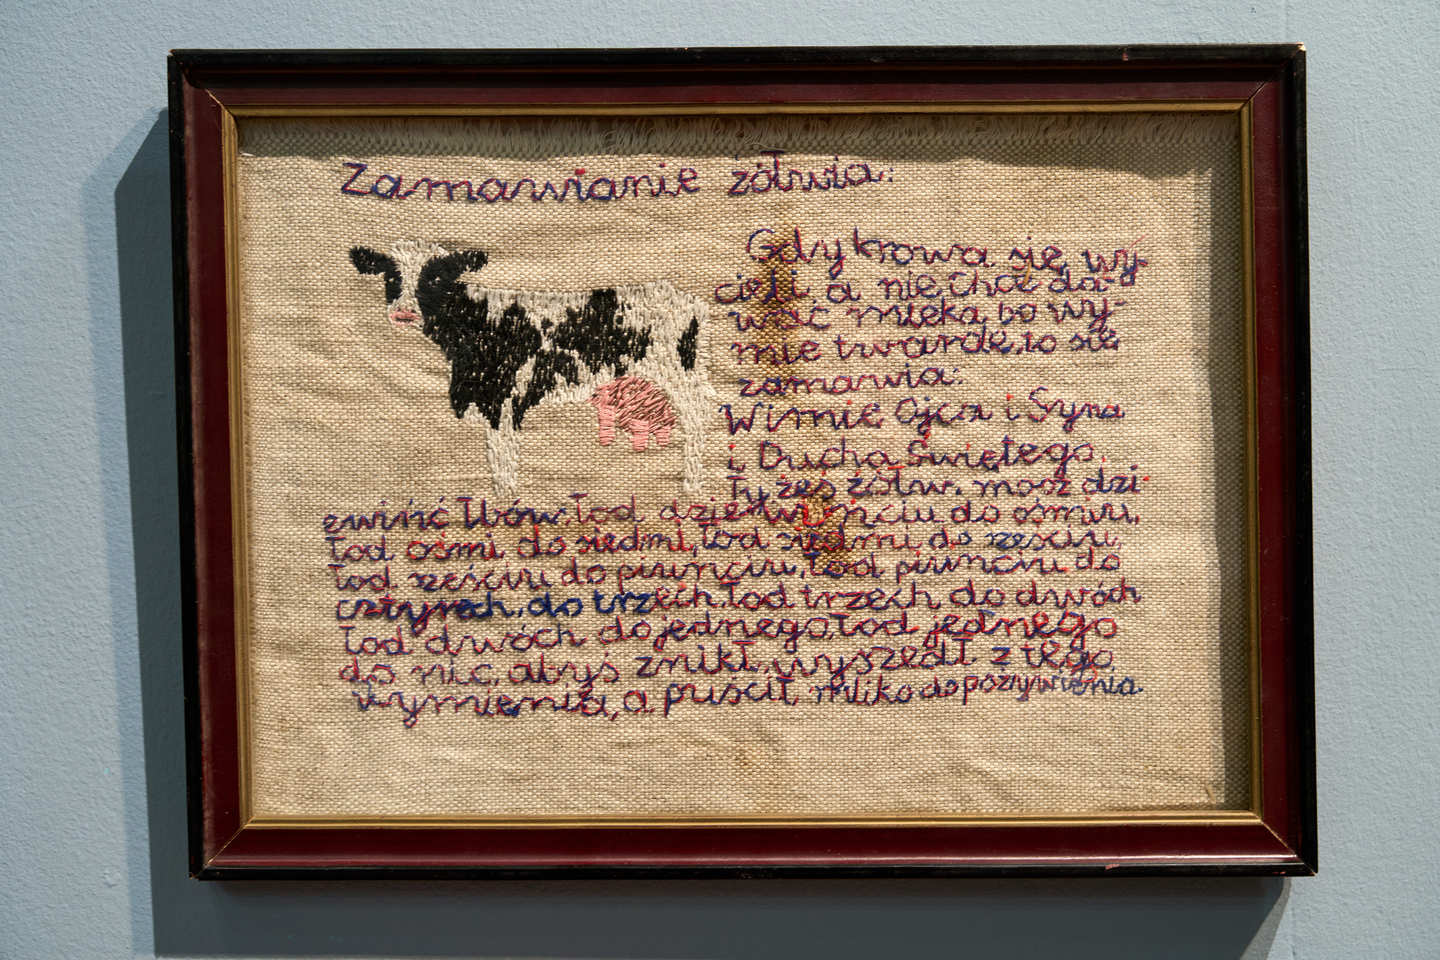 Zamawianie żółwia:
Gdy krowa się wy-
cieli a nie chce da-
wać mleka, bo wy-
mie twarde, to się
zamawia:
W imie Ojca i Syna
i Ducha Świętego.
Ty żeś żółw, mosz dzi-
łbów, łod do ośmiu,
łod ośmi do siedmi, łod siedmi do sześciu,
łod sześciu do piunciu, łod piunciu do
cztyrech, do trzech, łod trzech do dwóch
łod dwóch do jednego, łod jednego
do nic, abyś znikł, wyszedł z tego
wymienia, a puścił mliko do pożywienia.